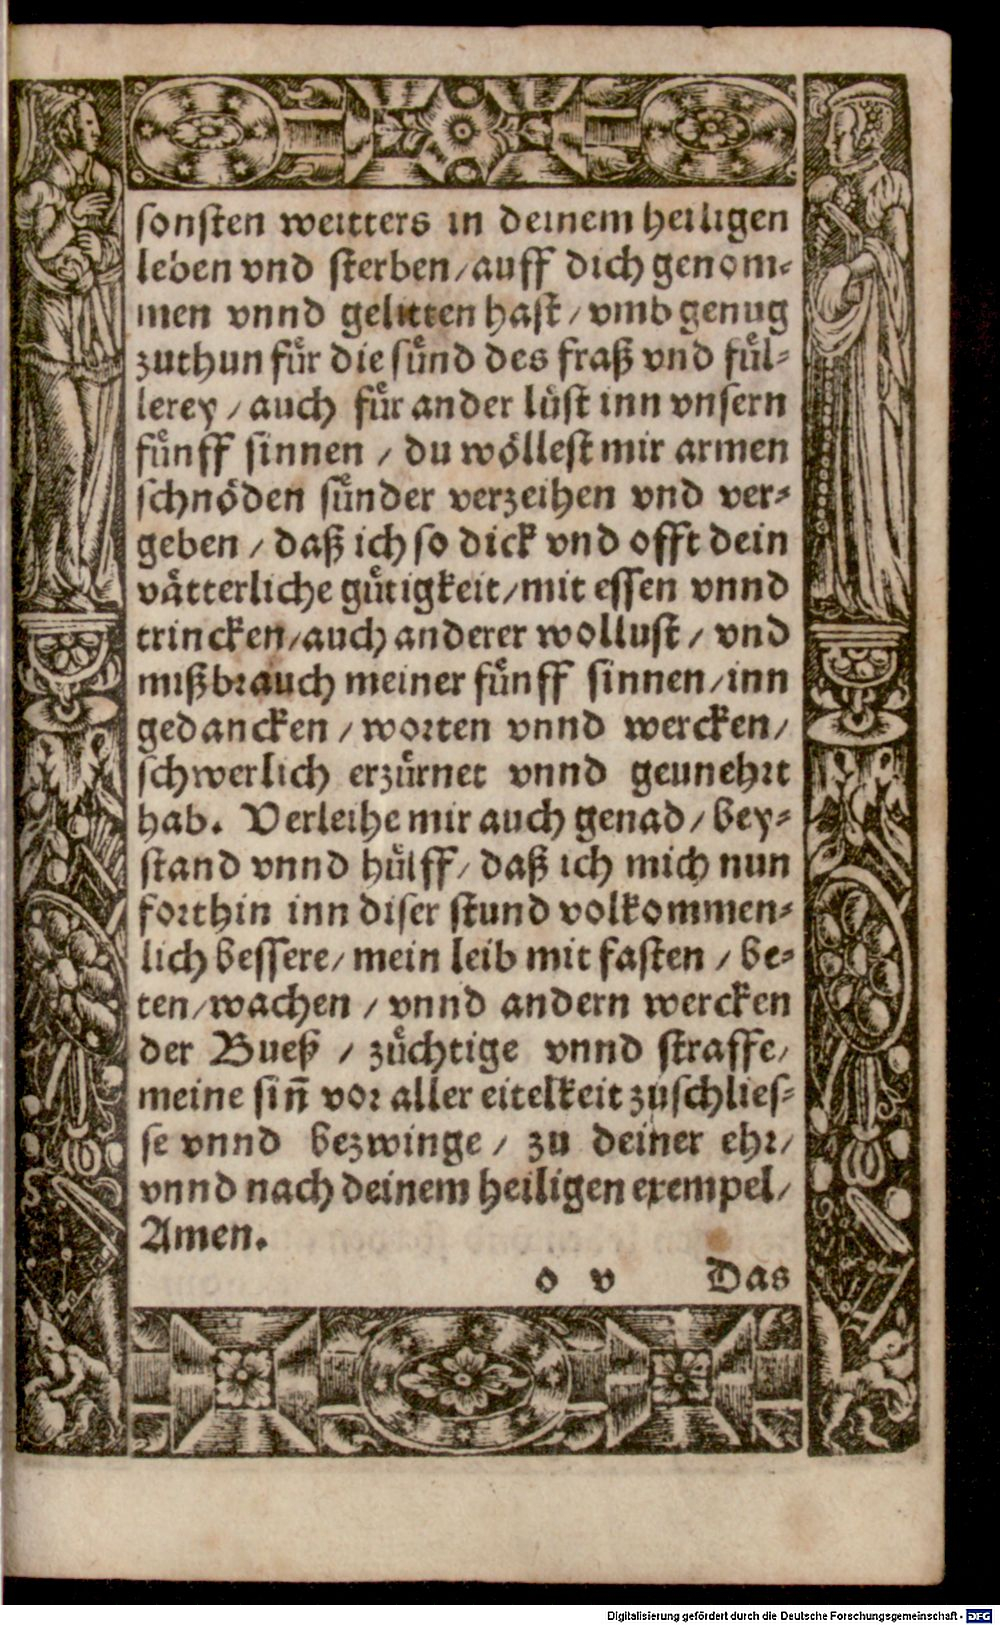 sonsten weitters in deinem heiligen
leben vnd sterben/auff dich genom-
men vnnd gelitten hast/vmb genug
zuthun fuͤr die suͤnd des fraß vnd fuͤl-
lerey/auch fuͤr ander luͤst inn vnsern
fuͤnff sinnen/du woͤllest mir armen
schnoͤden suͤnder verzeihen vnd ver-
geben/daß ich so dick vnd offt dein
vaͤtterliche guͤtigkeit/mit essen vnnd
trincken/auch anderer wollust/vnd
mißbrauch meiner fuͤnff sinnen/inn
gedancken/worten vnnd wercken/
schwerlich erzuͤrnet vnnd geunehrt
hab. Verleihe mir auch genad/bey-
stand vnnd huͤlff/daß ich mich nun
forthin inn diser stund volkommen-
lich bessere/mein leib mit fasten/be-
ten/wachen/vnnd andern wercken
der Bueß/zuͤchtige vnnd straffe/
meine sin̄ vor aller eitelkeit zuschlies-
se vnnd bezwinge/zu deiner ehr/
vnnd nach deinem heiligen exempel/
Amen.
o v Das
Digitalisierung gefördert durch die Deutsche Forschungsgemeinschaft - DFG